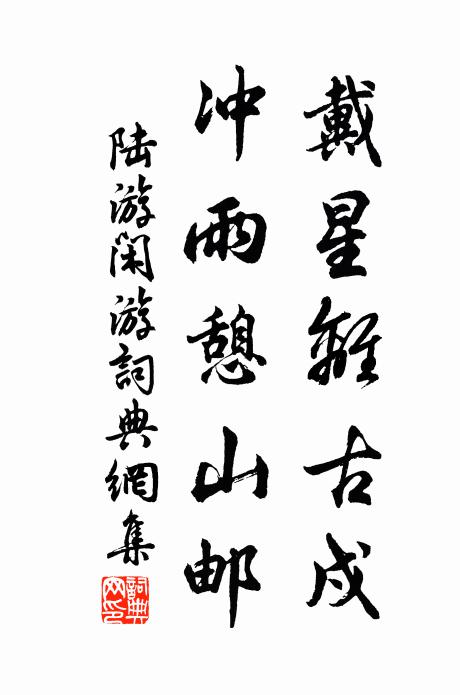 戴星離古戍
冲雨憩山邮
陆游闲游詞典網集
詞典网印